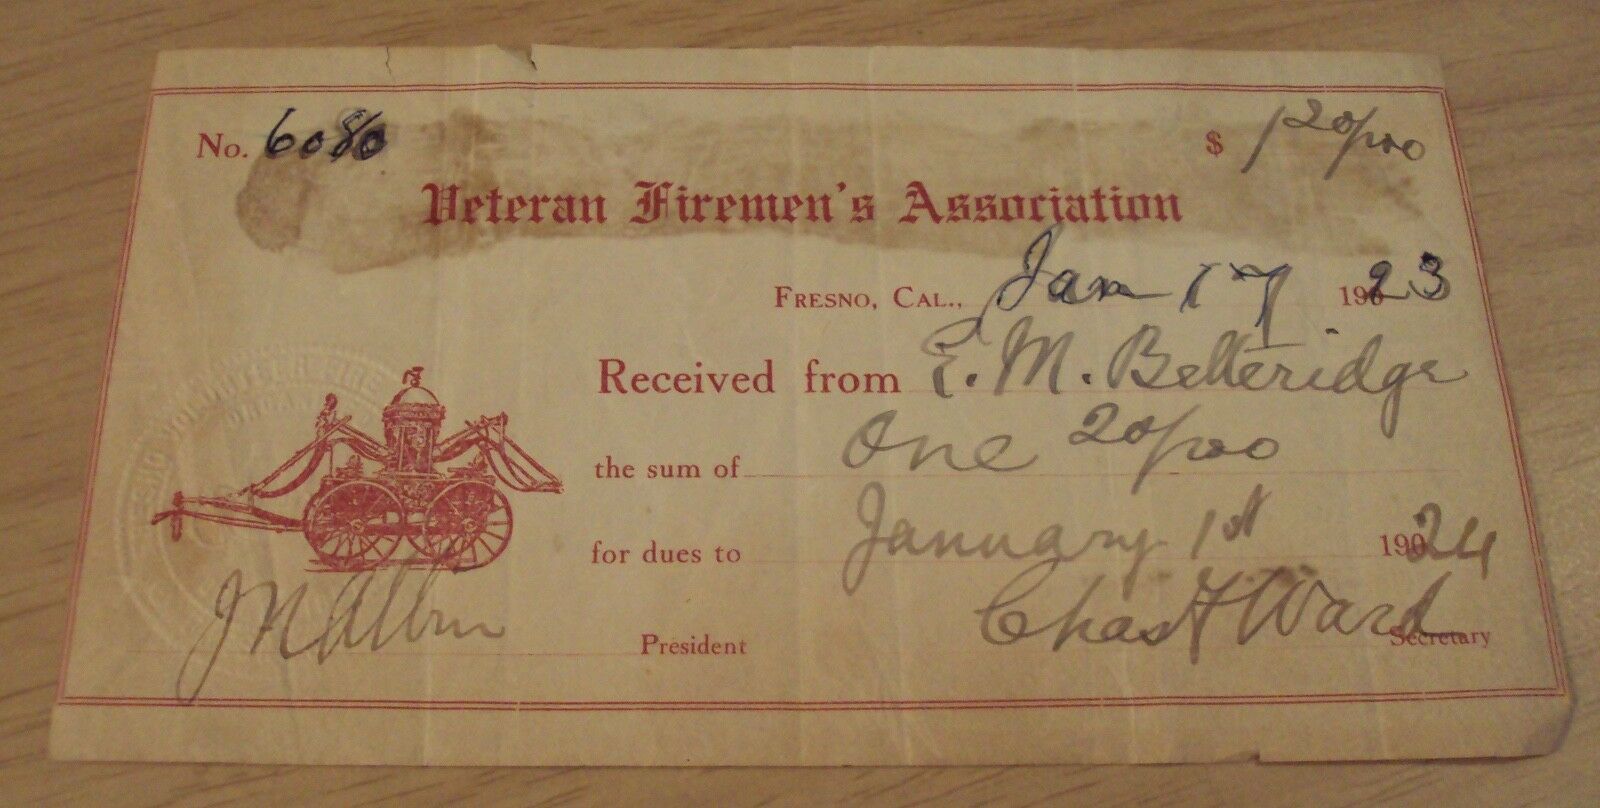 No. 6080 $ 1 20/100
Veteran Firemen's Association
Fresno, Cal., Jan 17 1923
Received from E. M. Betteridge
the sum of One 20/100
for dues to January 1st 1924
President Chas F Ward Secretary